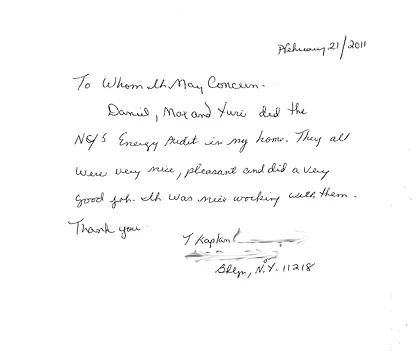 February 21/2011
To Whom It May Concern.
Daniel, Max and Yuri did the
NG/S Energy Audit in my home. They all
were very nice, pleasant and did a very
good job. It was nice working with them.
Thank you
T Kaplan
Bklyn, N.Y. 11218